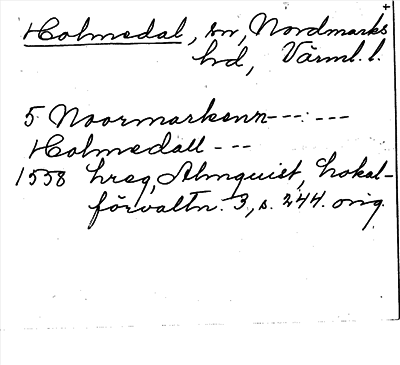 Holmedal, sn, Nordmarks
hd, Värml. l.
5 Noormarkenn --- : ---
Holmedall ---
1558 hreg, Almquist, Lokal-
förvaltn. 3, s. 244. orig.